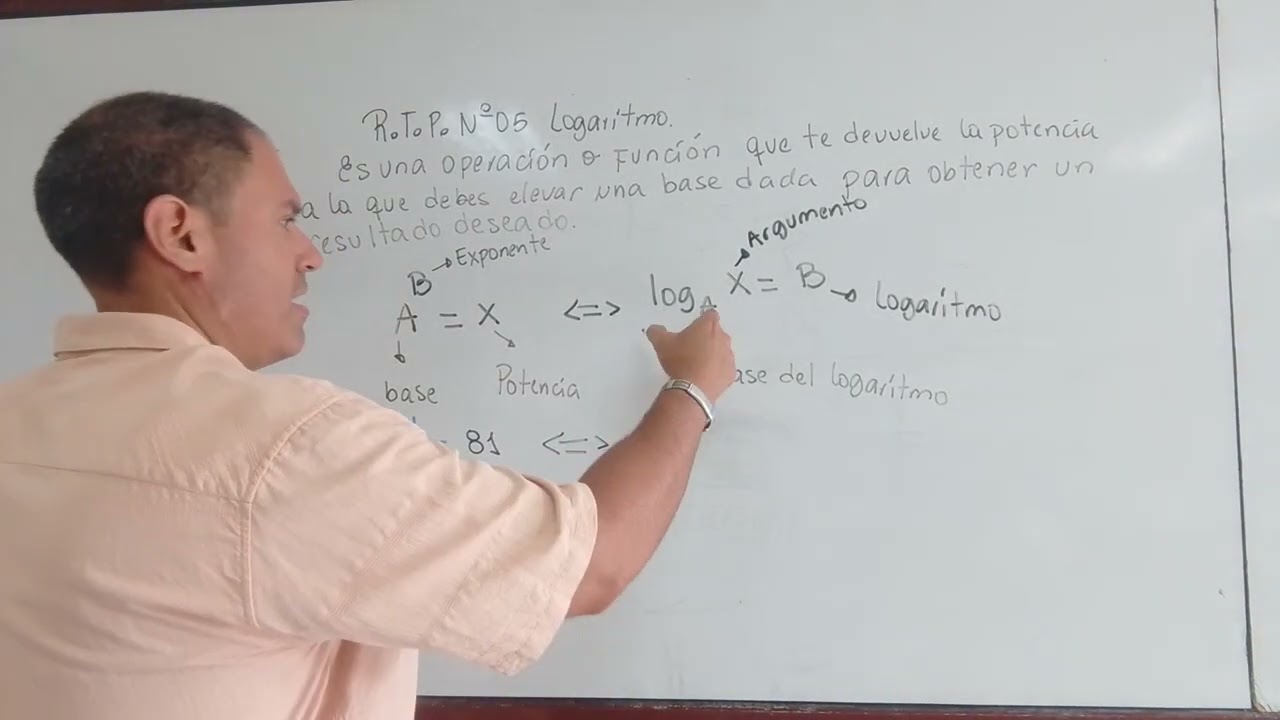 R.T.P. Nº05 Logarítmo.
es una operación o Función que te devuelve la potencia
a la que debes elevar una base dada para obtener un
resultado deseado.
B → Exponente
Argumento
A = X <=> log A X = B → Logarítmo
base Potencia
del logarítmo
81 <=>